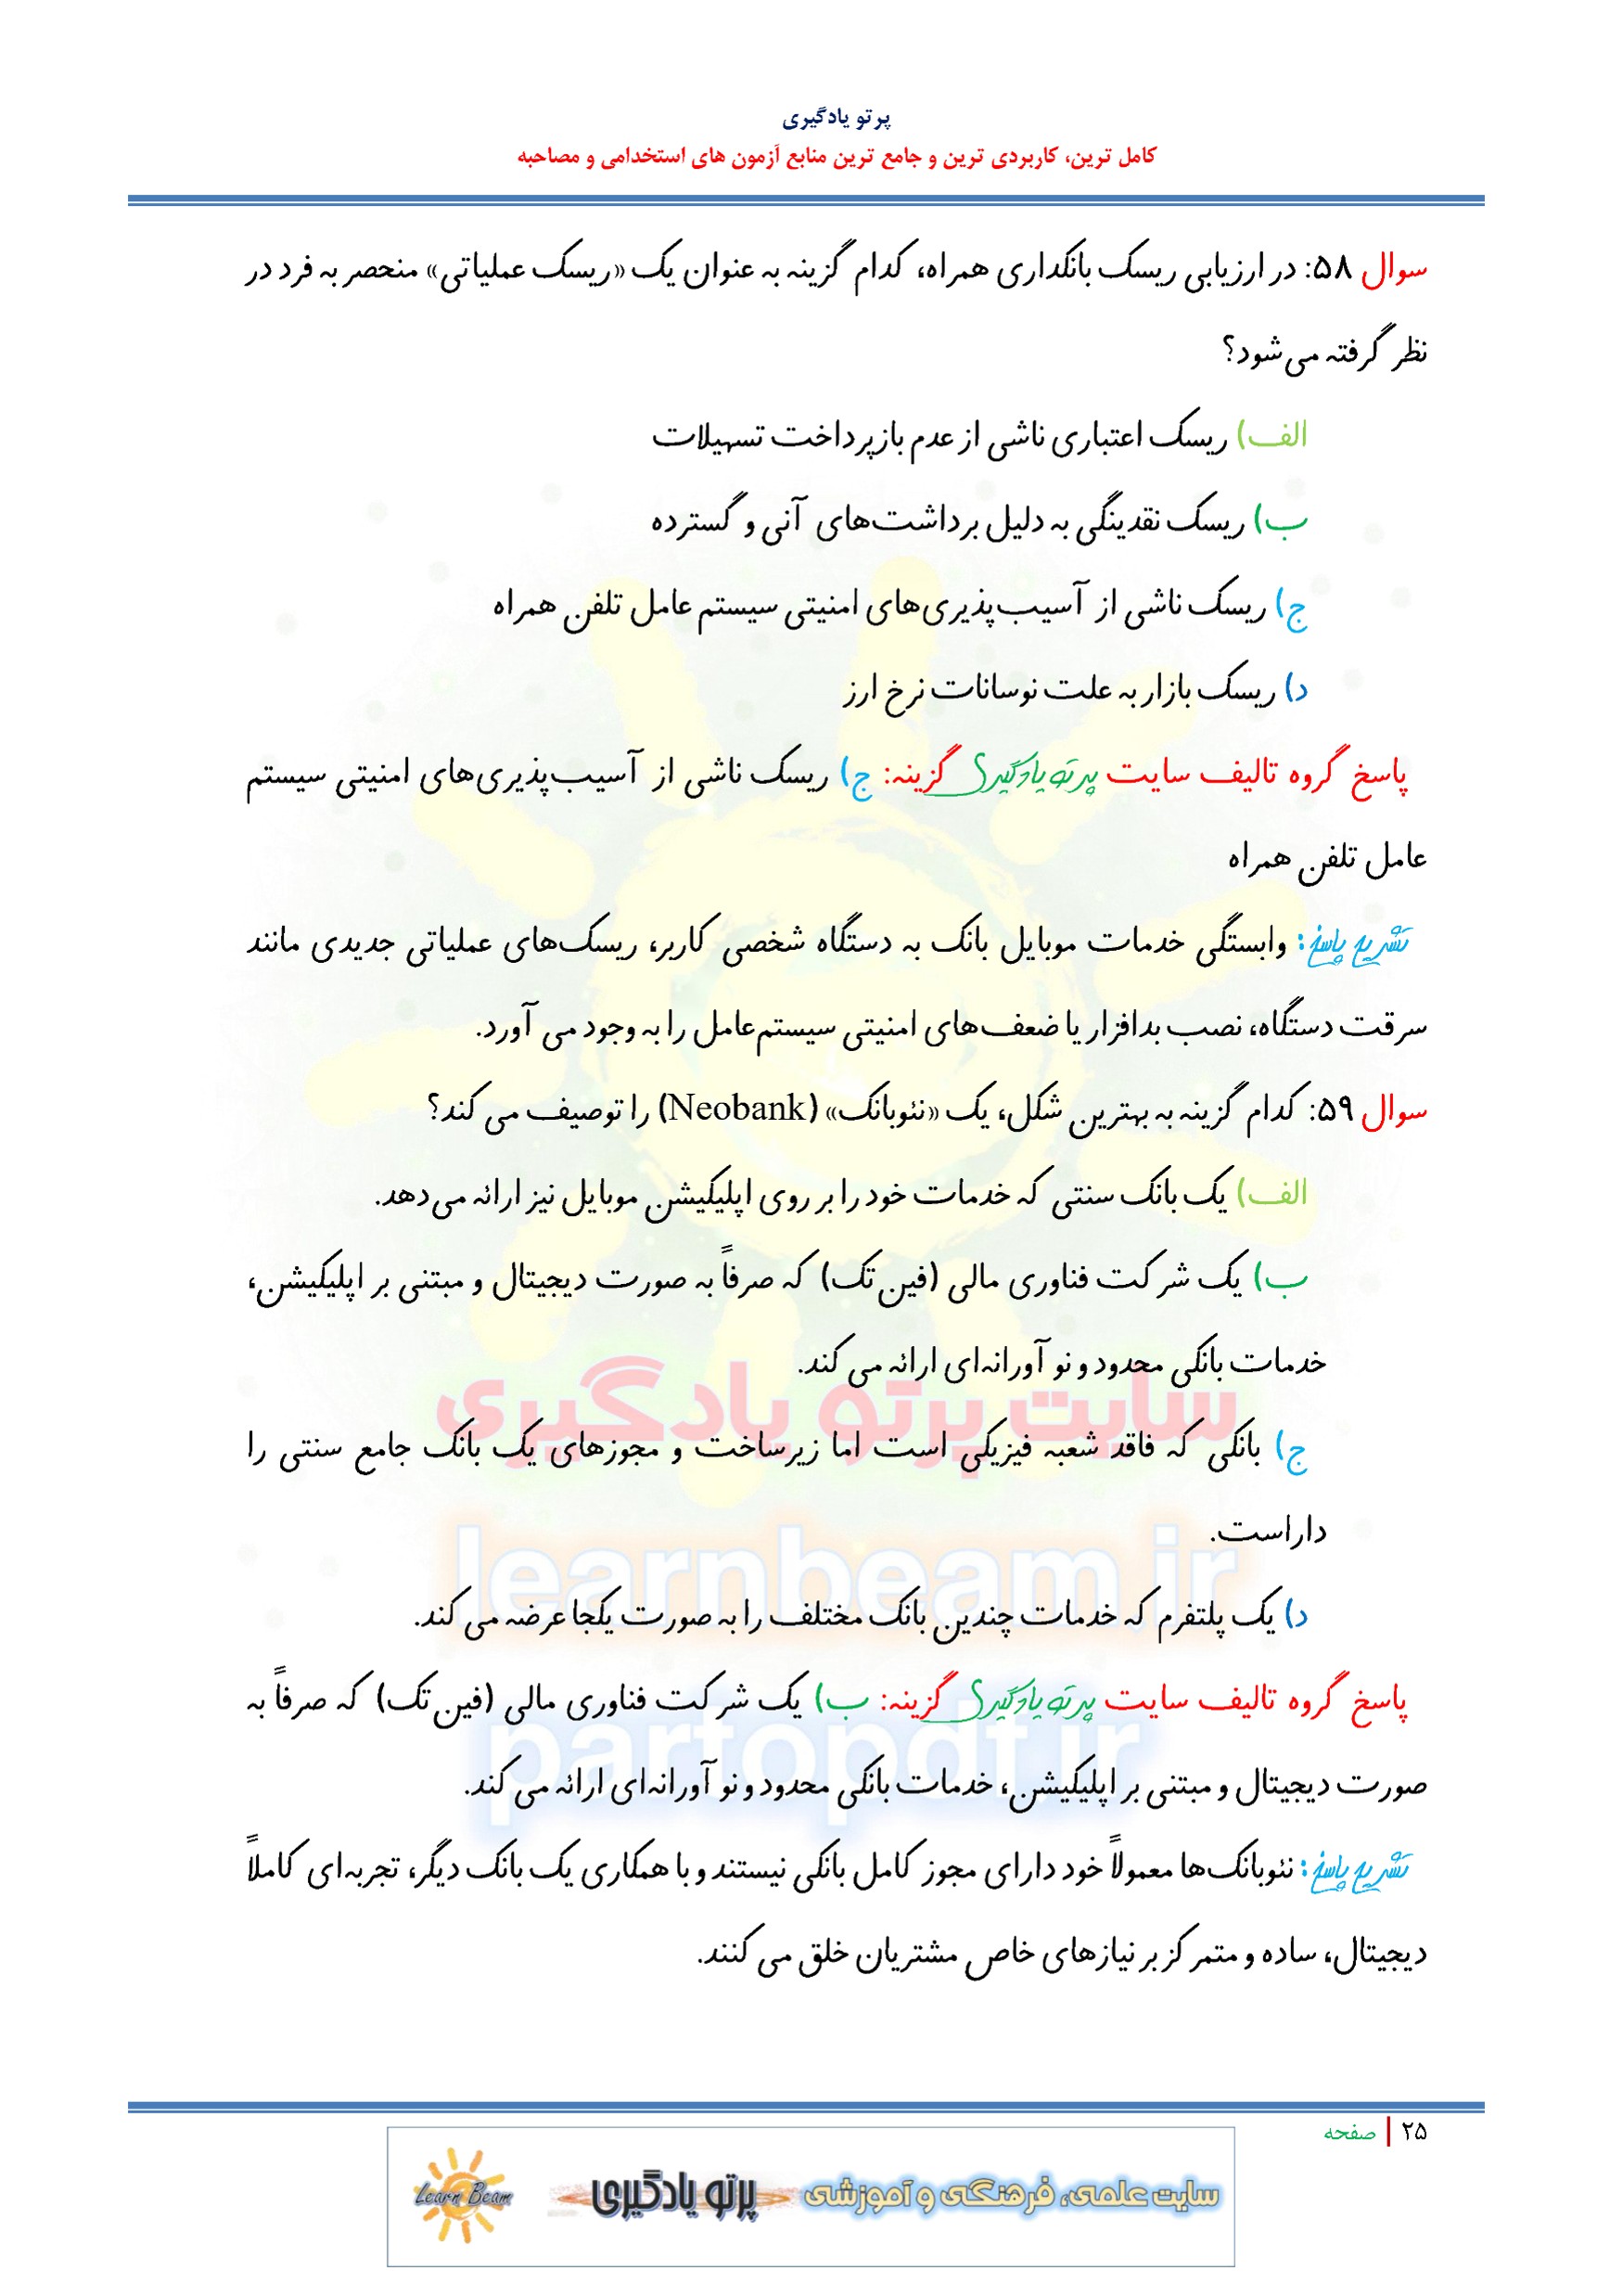 پرتو یادگیری
کامل ترین، کاربردی ترین و جامع ترین منابع آزمون های استخدامی و مصاحبه
سوال ۵۸: در ارزیابی ریسک بانکداری همراه، کدام گزینه به عنوان یک «ریسک عملیاتی» منحصر به فرد در
نظر گرفته می‌شود؟
الف) ریسک اعتباری ناشی از عدم بازپرداخت تسهیلات
ب) ریسک نقدینگی به دلیل برداشت‌های آنی و گسترده
ج) ریسک ناشی از آسیب‌پذیری‌های امنیتی سیستم عامل تلفن همراه
د) ریسک بازار به علت نوسانات نرخ ارز
پاسخ گروه تالیف سایت پرتو یادگیری گزینه: ج) ریسک ناشی از آسیب‌پذیری‌های امنیتی سیستم
عامل تلفن همراه
تشریح پاسخ: وابستگی خدمات موبایل بانک به دستگاه شخصی کاربر، ریسک‌های عملیاتی جدیدی مانند
سرقت دستگاه، نصب بدافزار یا ضعف‌های امنیتی سیستم‌عامل را به وجود می آورد.
سوال ۵۹: کدام گزینه به بهترین شکل، یک «نئوبانک» (Neobank) را توصیف می کند؟
الف) یک بانک سنتی که خدمات خود را بر روی اپلیکیشن موبایل نیز ارائه می‌دهد.
ب) یک شرکت فناوری مالی (فین‌تک) که صرفاً به صورت دیجیتال و مبتنی بر اپلیکیشن،
خدمات بانکی محدود و نو آورانه‌ای ارائه می کند.
ج) بانکی که فاقد شعبه فیزیکی است اما زیرساخت و مجوزهای یک بانک جامع سنتی را
داراست.
د) یک پلتفرم که خدمات چندین بانک مختلف را به صورت یکجا عرضه می کند.
پاسخ گروه تالیف سایت پرتو یادگیری گزینه: ب) یک شرکت فناوری مالی (فین‌تک) که صرفاً به
صورت دیجیتال و مبتنی بر اپلیکیشن، خدمات بانکی محدود و نو آورانه‌ای ارائه می کند.
تشریح پاسخ: نئوبانک‌ها معمولاً خود دارای مجوز کامل بانکی نیستند و با همکاری یک بانک دیگر، تجربه‌ای کاملاً
دیجیتال، ساده و متمرکز بر نیازهای خاص مشتریان خلق می کنند.
سایت پرتو یادگیری
learnbeam.ir
partopdf.ir
۲۵ | صفحه
سایت علمی، فرهنگی و آموزشی پرتو یادگیری Learn Beam